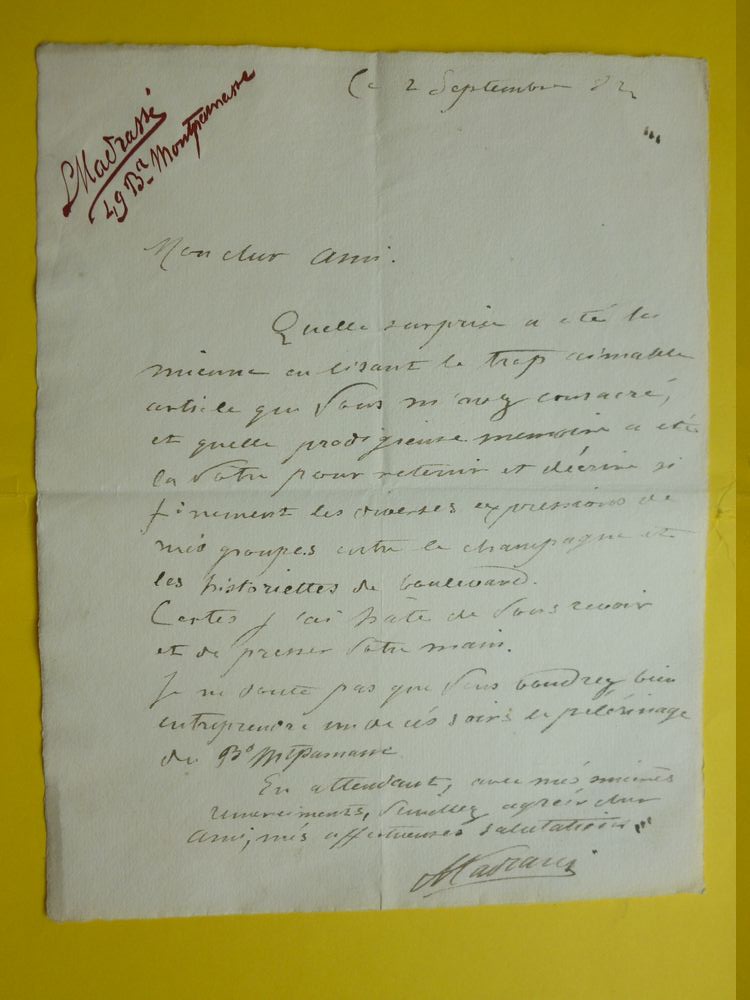 LMadrassi
49 Bd Montparnasse
Ce 2 Septembre 82
Mon cher Ami.
Quelle surprise a été la
mienne en lisant le trop aimable
article que Vous m'avez consacré,
et quelle prodigieuse memoire a été
la Votre pour retenir et décrire si
finement les diverses expressions de
mes groupes entre le champagne et
les historiettes de boulevard.
Certes j'ai hâte de Vous revoir
et de presser Votre main.
Je ne doute pas que Vous Voudrez bien
entreprendre un de cés soirs le pélérinage
du Bd Mtparnasse
En attendant, avec més
remerciments, Veuillez agréér cher
Ami, més affectueuses salutations
Madrassi